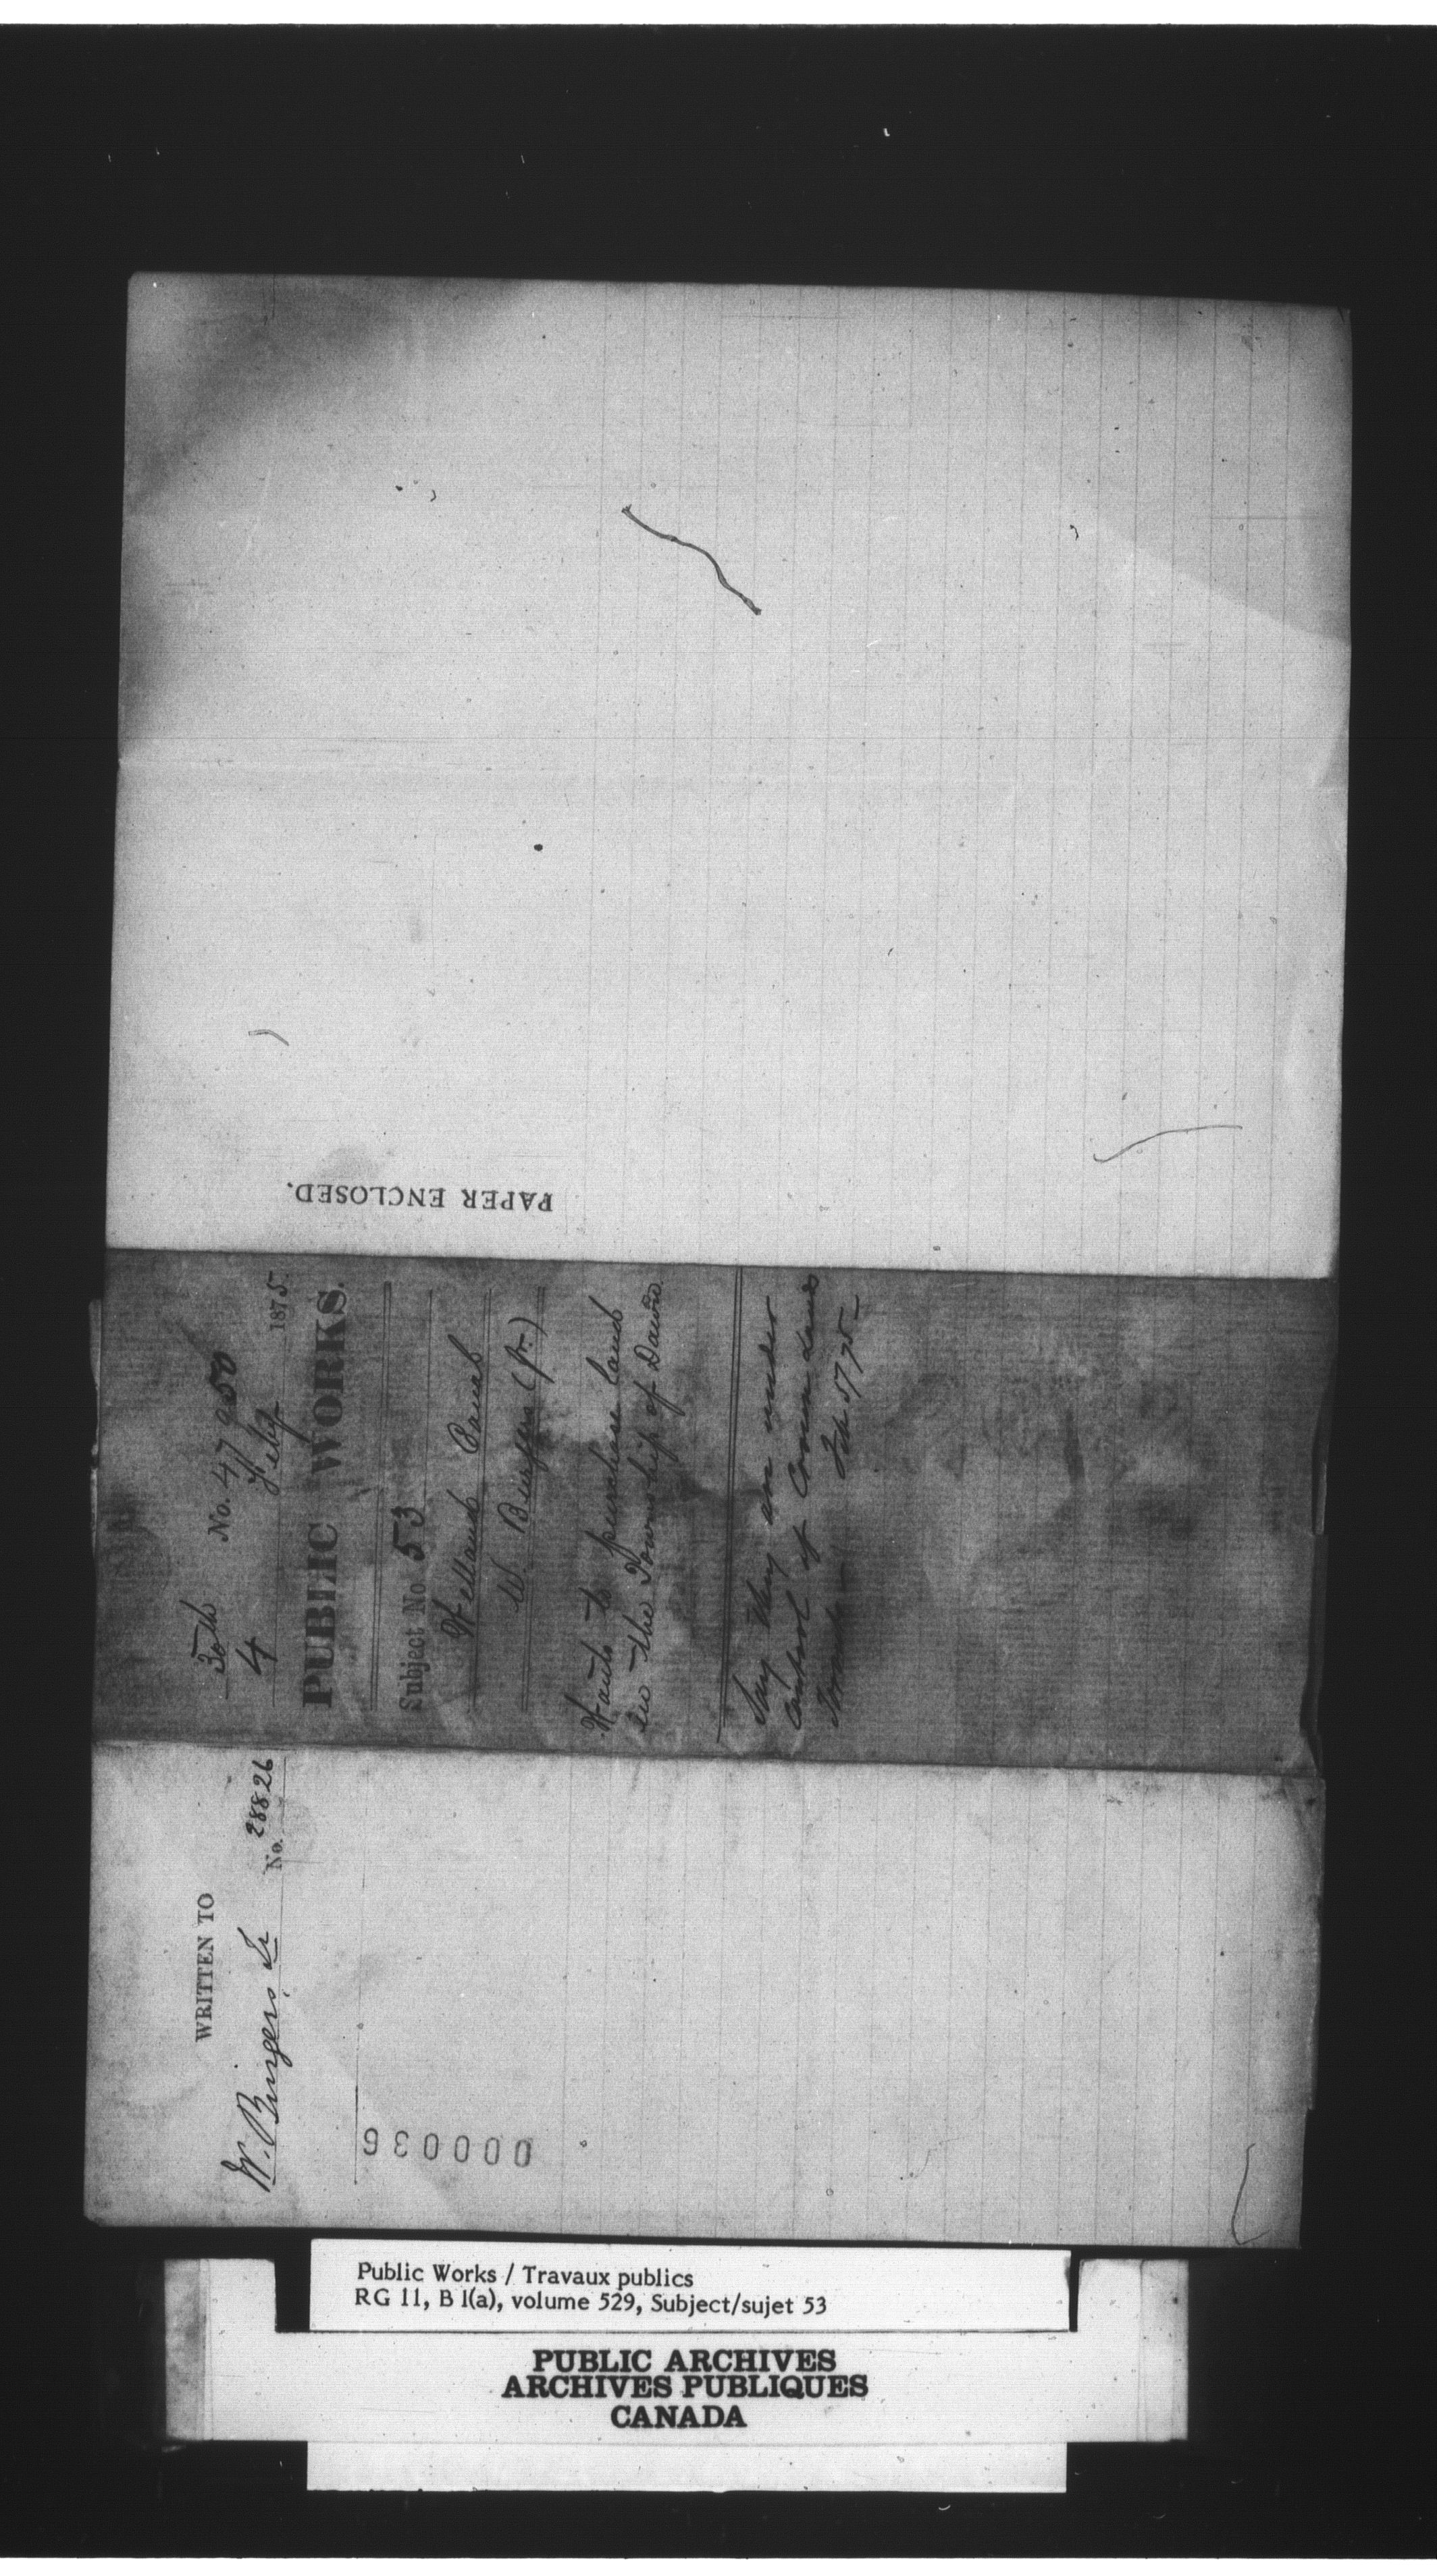 PAPER ENCLOSED.
30th No. 47250
4 Feby 1875
PUBLIC WORKS.
Subject No 53
Welland Canal
W. Burgess (Jr.)
Wants to purchase land
in the Township of Dawn
Say they are under
control of Crown Lands
Feb 5/75
WRITTEN TO
W. Burgess Jr No. 28826
000036
Public Works / Travaux publics
RG 11, B 1(a), volume 529, Subject/sujet 53
PUBLIC ARCHIVES
ARCHIVES PUBLIQUES
CANADA